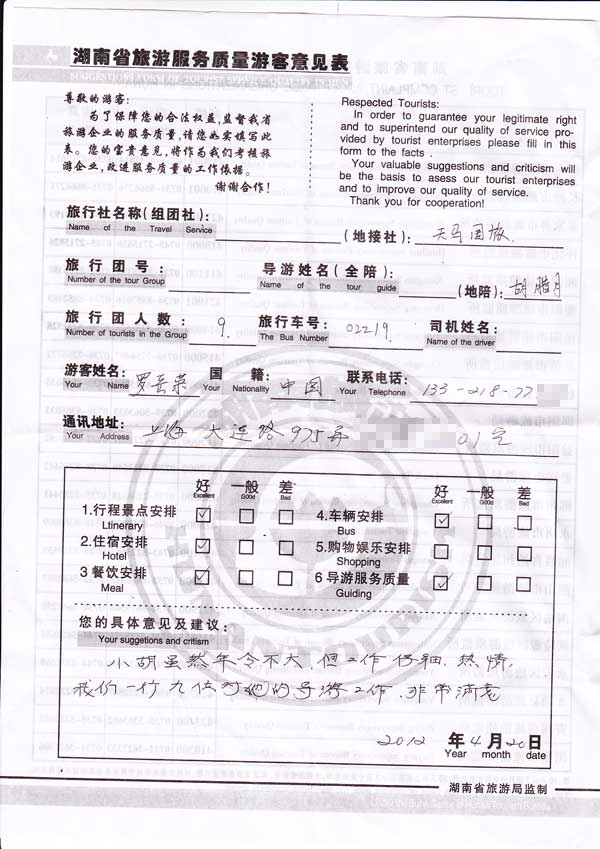 湖南省旅游服务质量游客意见表
尊敬的游客:
为了保障您的合法权益,监督我省
旅游企业的服务质量,请您如实填写此
表。您的宝贵意见,将作为我们考核旅
游企业,改进服务质量的工作依据。
谢谢合作!
Respected Tourists:
In order to guarantee your legitimate right
and to superintend our quality of service pro-
vided by tourist enterprises please fill in this
form to the facts .
Your valuable suggestions and criticism will
be the basis to asess our tourist enterprises
and to improve our quality of service.
Thank you for cooperation!
旅行社名称(组团社): (地接社): 天马国旅.
Name of the Travel Service
旅行团号: 导游姓名(全陪): (地陪): 胡腊月
Number of the tour Group Name of the tour guide
旅行团人数: 9. 旅行车号: 02219. 司机姓名:
Number of tourists in the Group The Bus Number Name of the driver
游客姓名: 罗岳荣 国籍: 中国 联系电话: 133-218-77
Your Name Your Nationality Your Telephone
通讯地址: 上海 大连路 975弄 01室
Your Address
好 一般 差 好 一般 差
Excellent Good Bad Excellent Good Bad
1.行程景点安排 4.车辆安排
Ltinerary Bus
2.住宿安排 5.购物娱乐安排
Hotel Shopping
3 餐饮安排 6 导游服务质量
Meal Guiding
您的具体意见及建议:
Your suggetions and critism
小胡虽然年令不大,但工作仔细,热情,
我们一行九位对他的导游工作,非常满意
2012 年 4 月 20 日
Year month date
湖南省旅游局监制